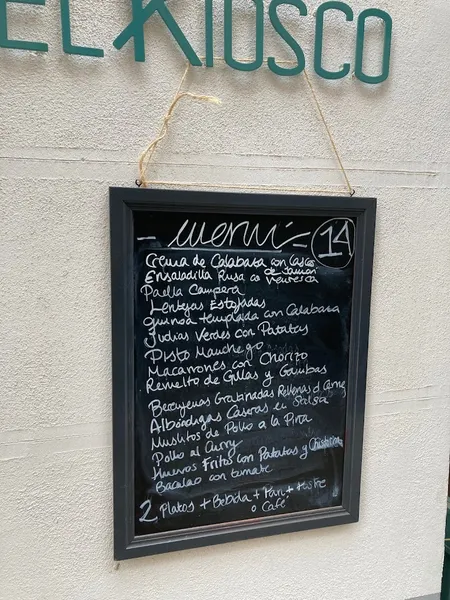 EL KIOSCO
- menú -
14
Crema de Calabaza con Cascos
de Jamón
Ensaladilla Rusa co Ventresca
Paella Campera
Lentejas Estofadas
Quinoa templada con Calabaza
Judias Verdes con Patatas
Pisto Manchego
Macarrones con Chorizo
Revuelto de Gulas y Gambas
Berenjenas Gratinadas Rellenas d Carne
Albóndigas Caseras en Salsa
Muslitos de Pollo a la Pirra
Pollo al Curry
Huevos Fritos con Patatas y Chistorra
Bacalao con tomate
2 Platos + Bebida + Pan + Postre
o Café